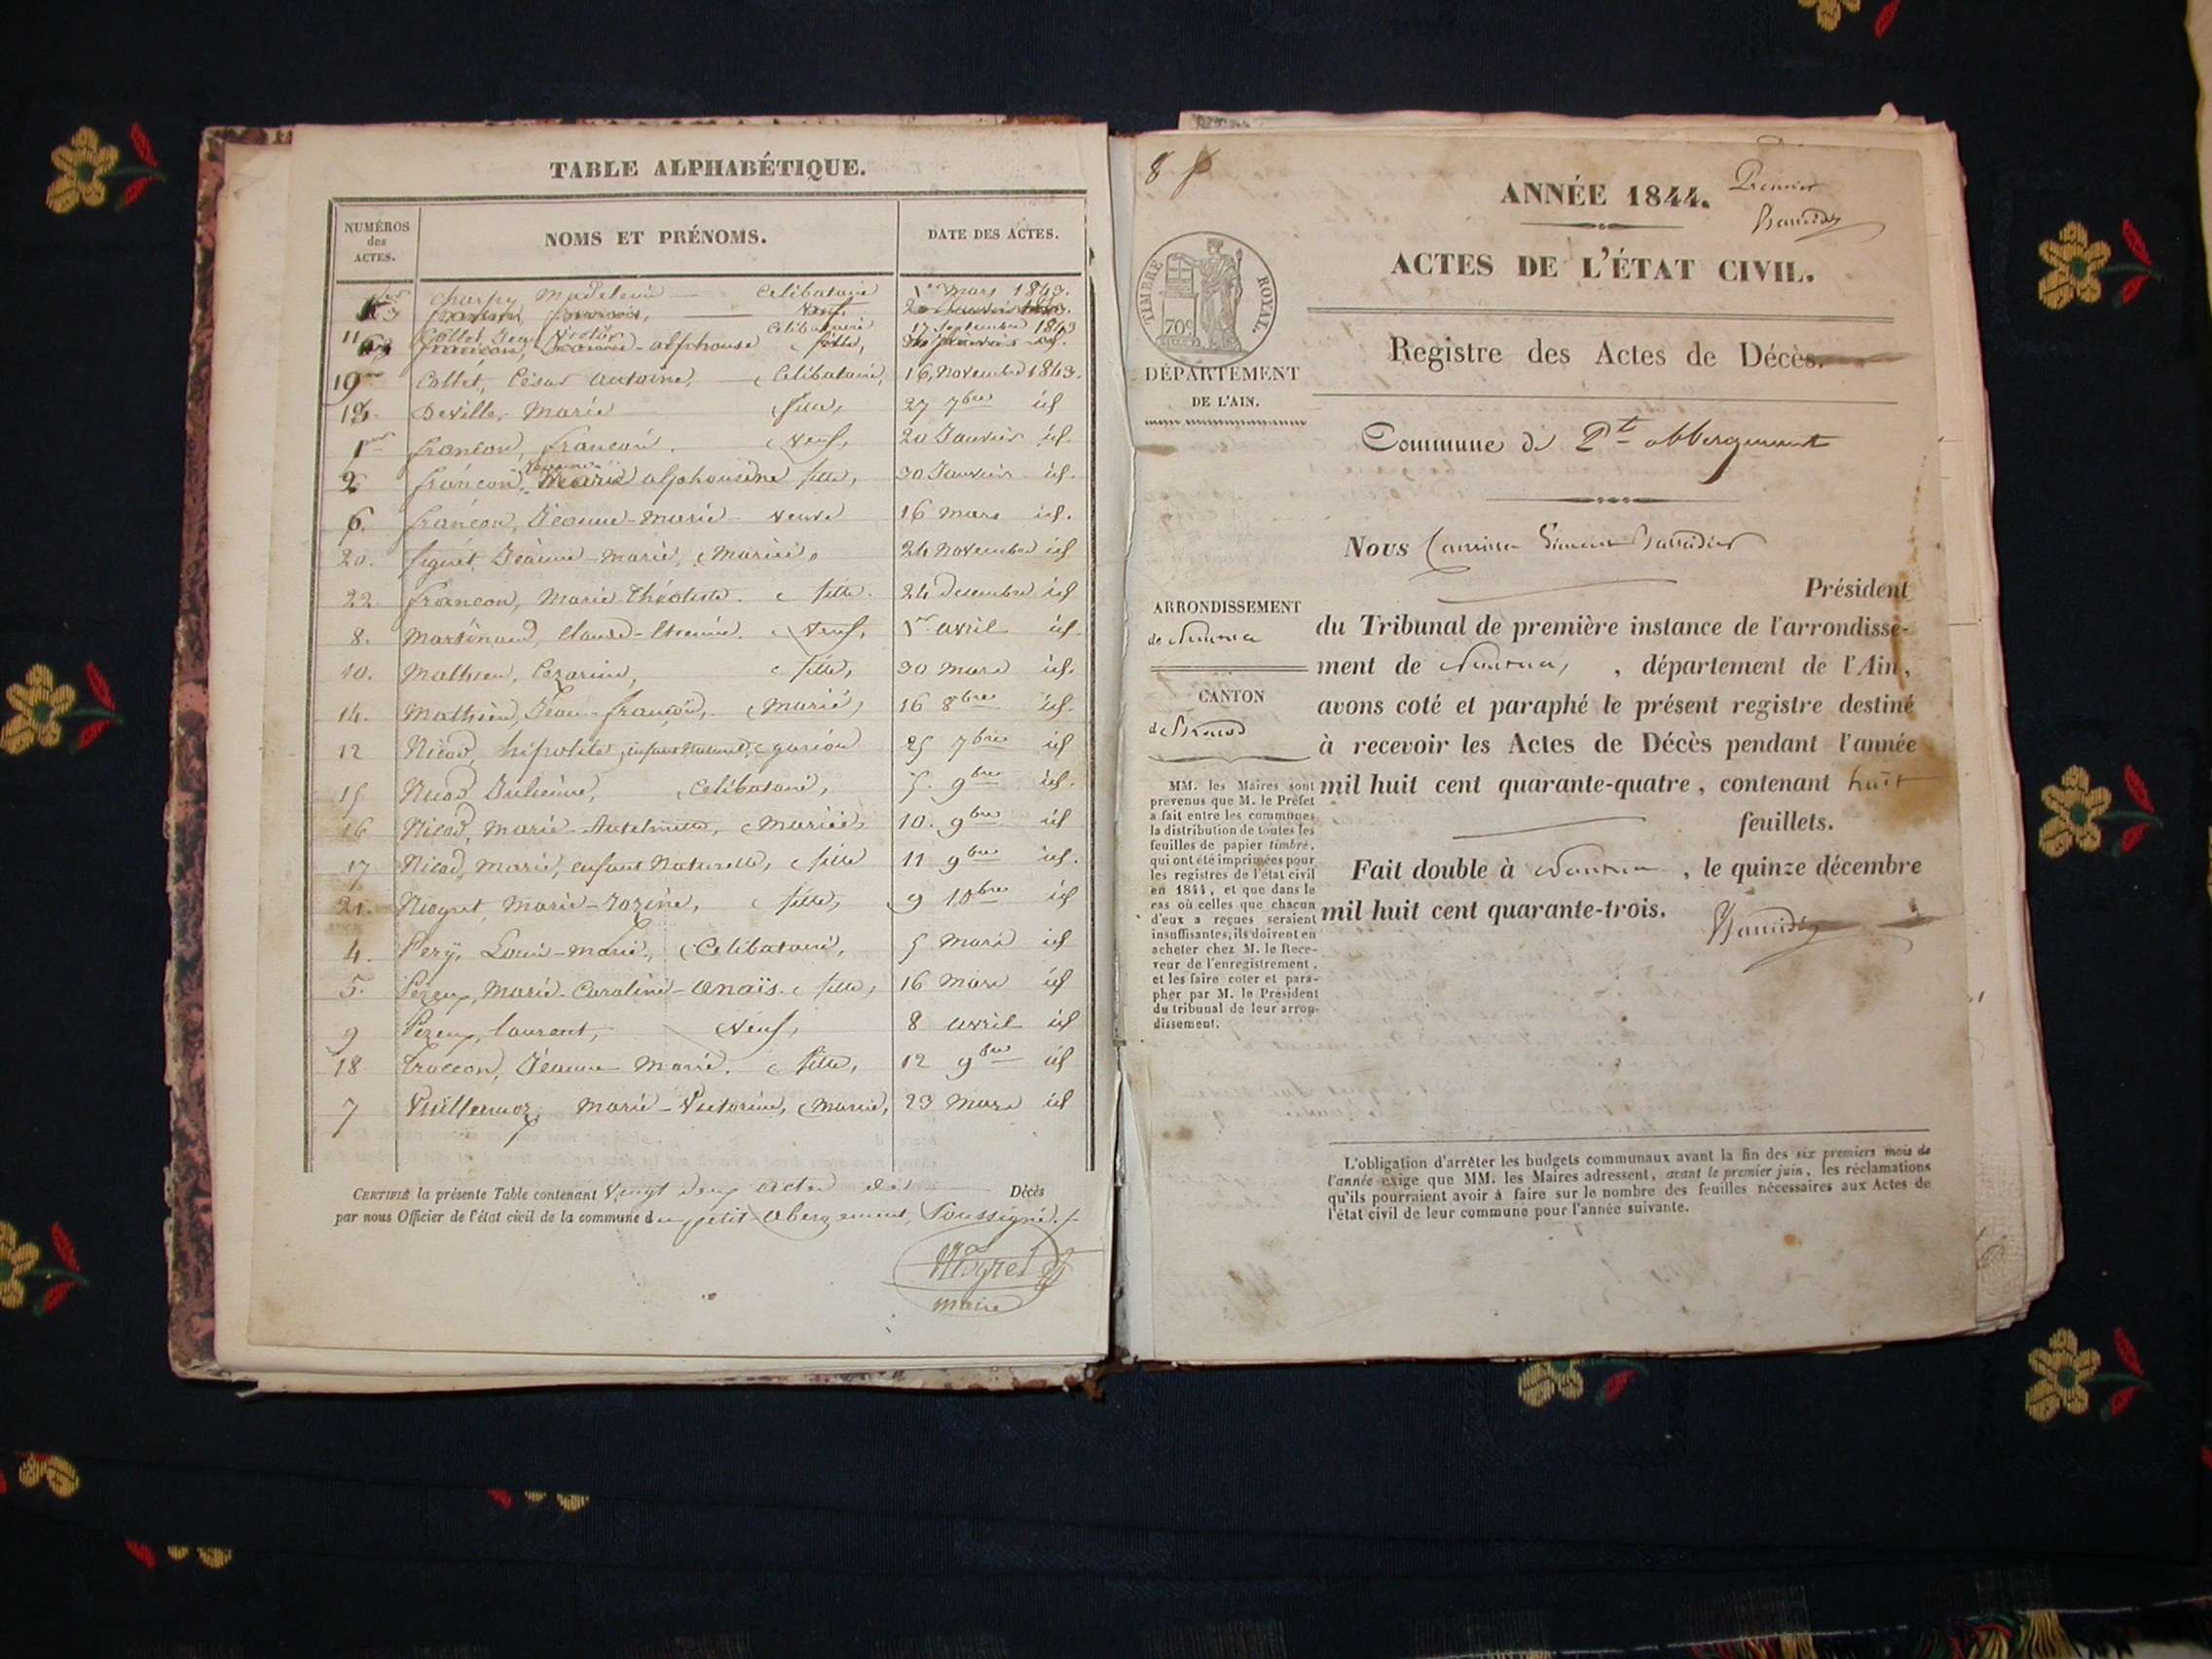 TABLE ALPHABÉTIQUE.
NUMÉROS
des
ACTES.
NOMS ET PRÉNOMS.
DATE DES ACTES.
3 Charpy, Madeleine Célibataire 1er Mars 1843.
11 Collet, Jean Victor Célibataire 17 Septembre 1843
19 Collet, César Antoine, Célibataire, 16, Novembre 1843.
13. Deville, Marie fille, 27 7bre id
1er françon, françois. Veuf, 20 Janvier id.
2 françon, alphonsine fille, 30 Janvier id.
6. françon, Jeanne-Marie Veuve 16 Mars id.
20. figuet, Jeanne-Marie, Mariée, 24 Novembre id
22. françon, Marie Théotiste. fille. 24 Decembre id
8. Martinand, Claude-Etienne. Veuf, 1er avril id.
10. Mathieu, Cezarine, fille, 30 Mars id.
14. Mathieu, Jean-françois, Marié, 16 8bre id.
12 Nicod, hipolite, enfant Naturel, garçon 25 7bre id
15 Nicod Julienne, Célibataire, 5. 9bre id.
16 Nicod, Marie-Anthelmette, Mariée, 10. 9bre id
17 Nicod, Marie, enfant Naturelle, fille 11 9bre id.
21. Niogret, Marie-Rozine, fille, 9 10bre id
4. Pery, Louis-Marie, Célibataire, 5 Mars id
5. Pezeux, Marie-Caroline-Anaïs. fille, 16 Mars id
9 Pezeux, laurent, Veuf, 8 avril id
18 Traccon, Jeanne Marie. fille, 12 9bre id
7 Vuillermoz, Marie-Victorine, Mariée, 23 Mars id
CERTIFIÉ la présente Table contenant Vingt deux actes de Décès
par nous Officier de l'état civil de la commune du petit Abergement, Soussigné.
Niogret
maire
8
ANNÉE 1844.
Premier
ACTES DE L'ÉTAT CIVIL.
TIMBRE ROYAL.
70c
Registre des Actes de Décès.
DÉPARTEMENT
DE L'AIN.
Commune de Pt abbergement
Nous
Président
ARRONDISSEMENT
de Nantua
du Tribunal de première instance de l'arrondisse-
ment de Nantua, , département de l'Ain,
CANTON
de Brenod
avons coté et paraphé le présent registre destiné
à recevoir les Actes de Décès pendant l'année
mil huit cent quarante-quatre, contenant huit
feuillets.
MM. les Maires sont
prévenus que M. le Préfet
a fait entre les communes
la distribution de toutes les
feuilles de papier timbré,
qui ont été imprimées pour
les registres de l'état civil
en 1844, et que dans le
cas où celles que chacun
d'eux a reçues seraient
insuffisantes, ils doivent en
acheter chez M. le Rece-
veur de l'enregistrement,
et les faire coter et para-
pher par M. le Président
du tribunal de leur arron-
dissement.
Fait double à Nantua , le quinze décembre
mil huit cent quarante-trois.
L'obligation d'arrêter les budgets communaux avant la fin des six premiers mois de
l'année exige que MM. les Maires adressent, avant le premier juin, les réclamations
qu'ils pourraient avoir à faire sur le nombre des feuilles nécessaires aux Actes de
l'état civil de leur commune pour l'année suivante.